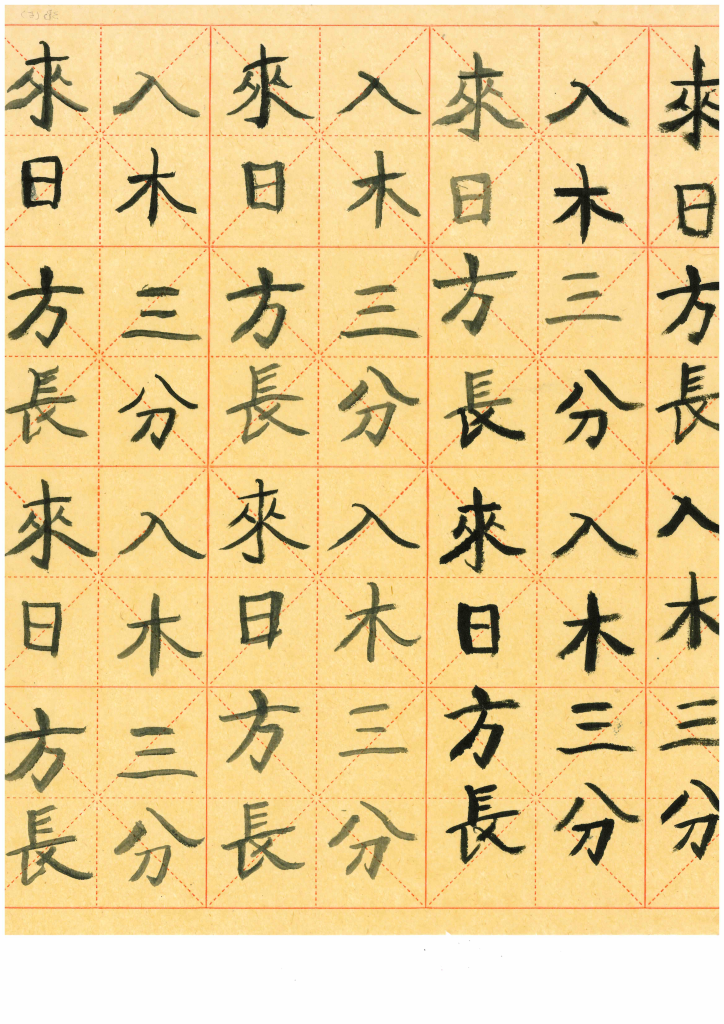 來日方長入木三分
入木三分入木三分
來日方長來日方長
入木三分入木三分
來日方長來日方長
入木三分入木三分
來日方長來日方長